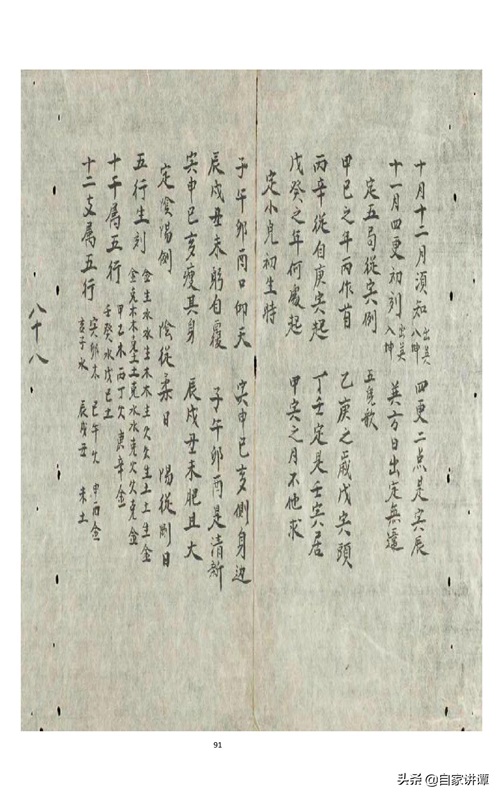 十月十二月須知 出巽 入坤 四更二点是寅辰
十一月四更初刻 出巽 入坤 英方日出定無違
定五局從寅例 五虎歌
甲己之年丙作首 乙庚之歲戊寅頭
丙辛從自庚寅起 丁壬定是壬寅居
戊癸之年何處起 甲寅之月不他求
定小兒初生時
子午卯酉口仰天 寅申巳亥側身边
辰戌丑未躬自覆 子午卯酉是清新
寅申巳亥瘦其身 辰戌丑未肥且大
定陰陽例 陰從柔日 陽從剛日
五行生刻 金生水水生木木生火火生土土生金
金克木木克土土克水水克火火克金
十干属五行 甲乙木丙丁火庚辛金
壬癸水戊己土
十二支属五行 寅卯木 巳午火 申酉金
亥子水 辰戌丑未土
八十八
91
头条 @自家讲谭